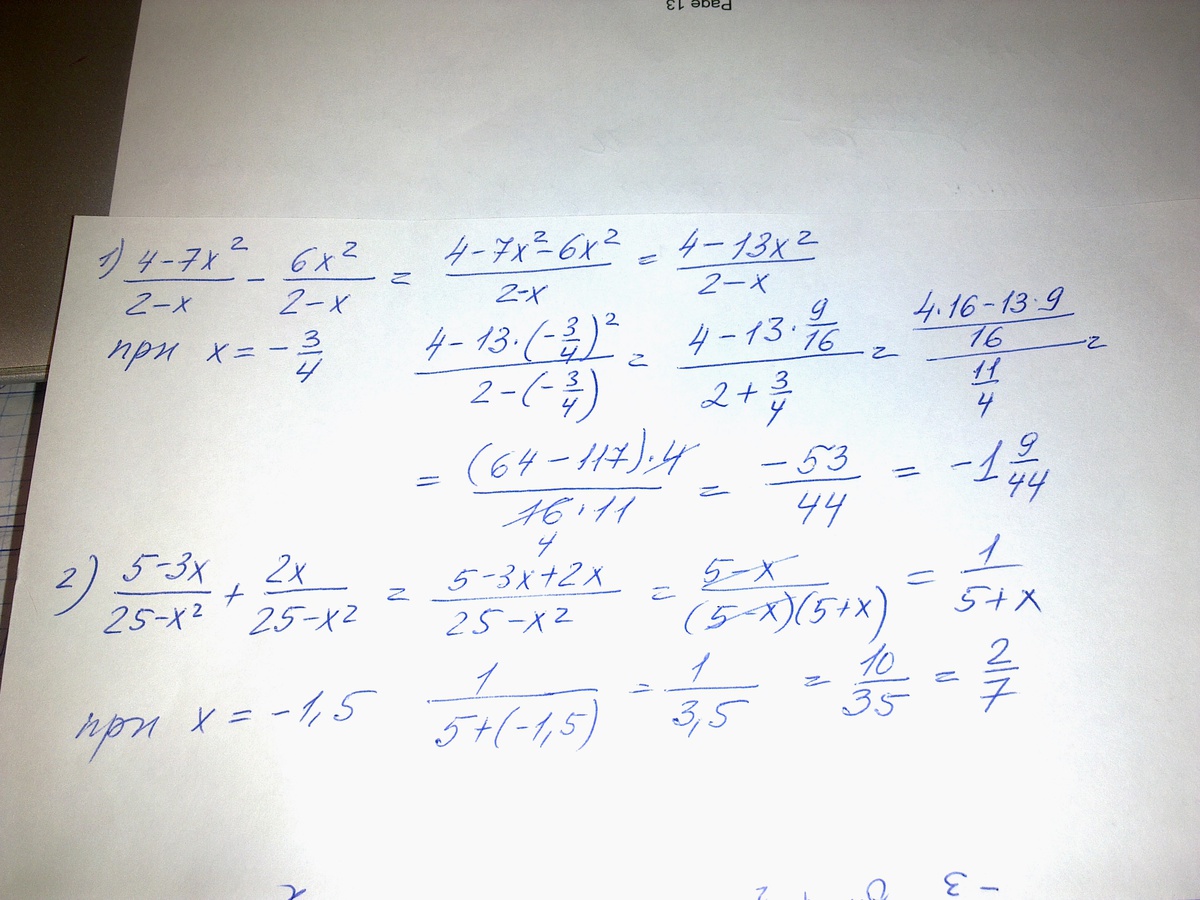 Page 13
1) (4-7x²)/(2-x) - 6x²/(2-x) = (4-7x²-6x²)/(2-x) = (4-13x²)/(2-x)
при x = -3/4 (4-13·(-3/4)²)/(2-(-3/4)) = (4-13·9/16)/(2+3/4) = ((4·16-13·9)/16)/(11/4) =
= ((64-117)·4)/(16·11) 4 = -53/44 = -1 9/44
2) (5-3x)/(25-x²) + 2x/(25-x²) = (5-3x+2x)/(25-x²) = (5-x)/((5-x)(5+x)) = 1/(5+x)
при x = -1,5 1/(5+(-1,5)) = 1/3,5 = 10/35 = 2/7